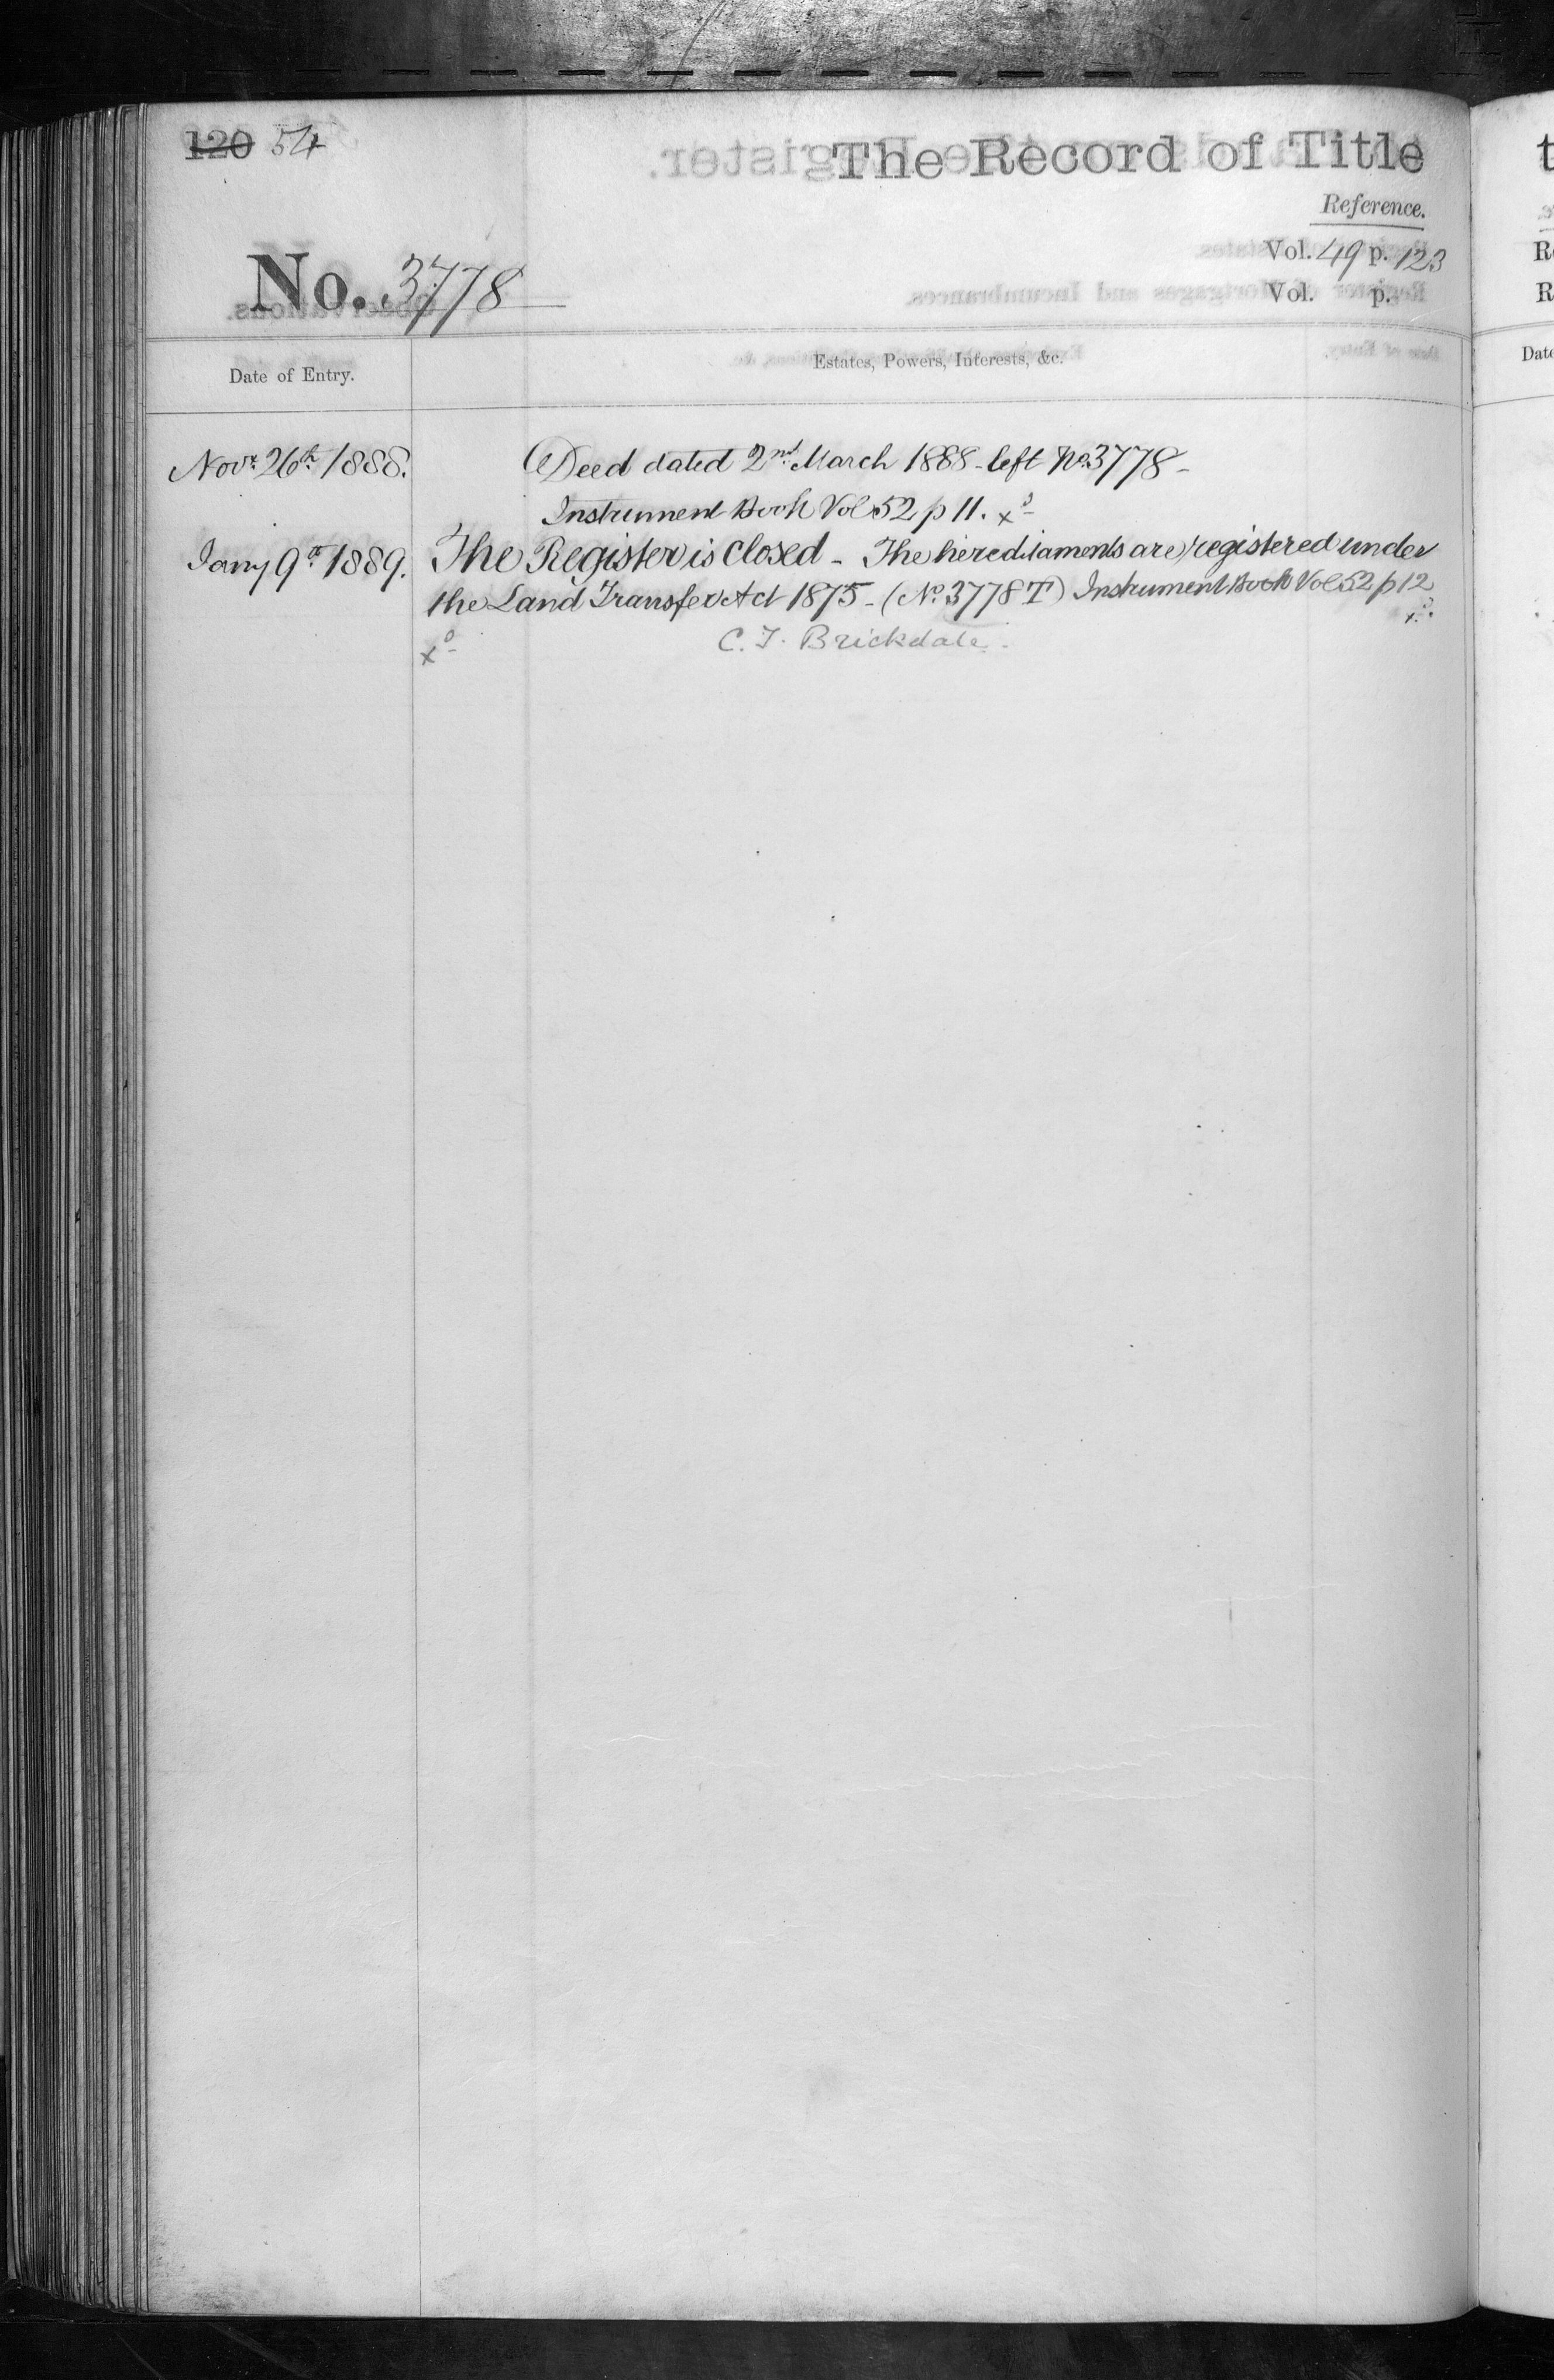 120 54
The Record of Title
Reference.
Vol. 49 p. 123
No. 3778
Vol. p.
Date of Entry.
Estates, Powers, Interests, &c.
Novr. 26th 1888.
Deed dated 2nd March 1888 - left No. 3778 -
Instrument Book Vol 52 p 11.
Jany 9th 1889.
The Register is closed - The herediaments are registered under
the Land Transfer Act 1875 - (No. 3778 T) Instrument Book Vol 52 p 12
C. F. Brickdale.